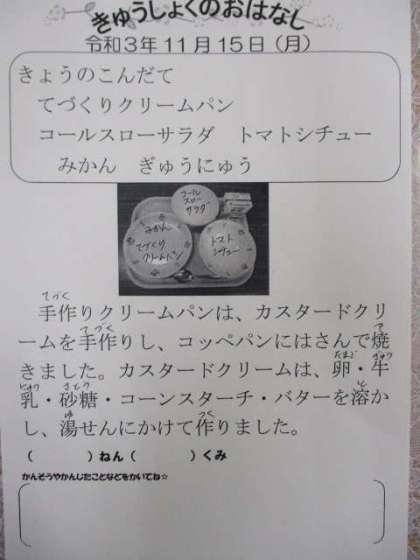 きゅうしょくのおはなし
令和3年11月15日（月）
きょうのこんだて
てづくりクリームパン
コールスローサラダ　トマトシチュー
みかん　ぎゅうにゅう
コール
スロー
サラダ
みかん
てづくり
クリームパン
トマト
シチュー
手作りクリームパンは、カスタードクリ
ームを手作りし、コッペパンにはさんで焼
きました。カスタードクリームは、卵・牛
乳・砂糖・コーンスターチ・バターを溶か
し、湯せんにかけて作りました。
（　　　）ねん（　　　）くみ
かんそうやかんじたことなどをかいてね☆